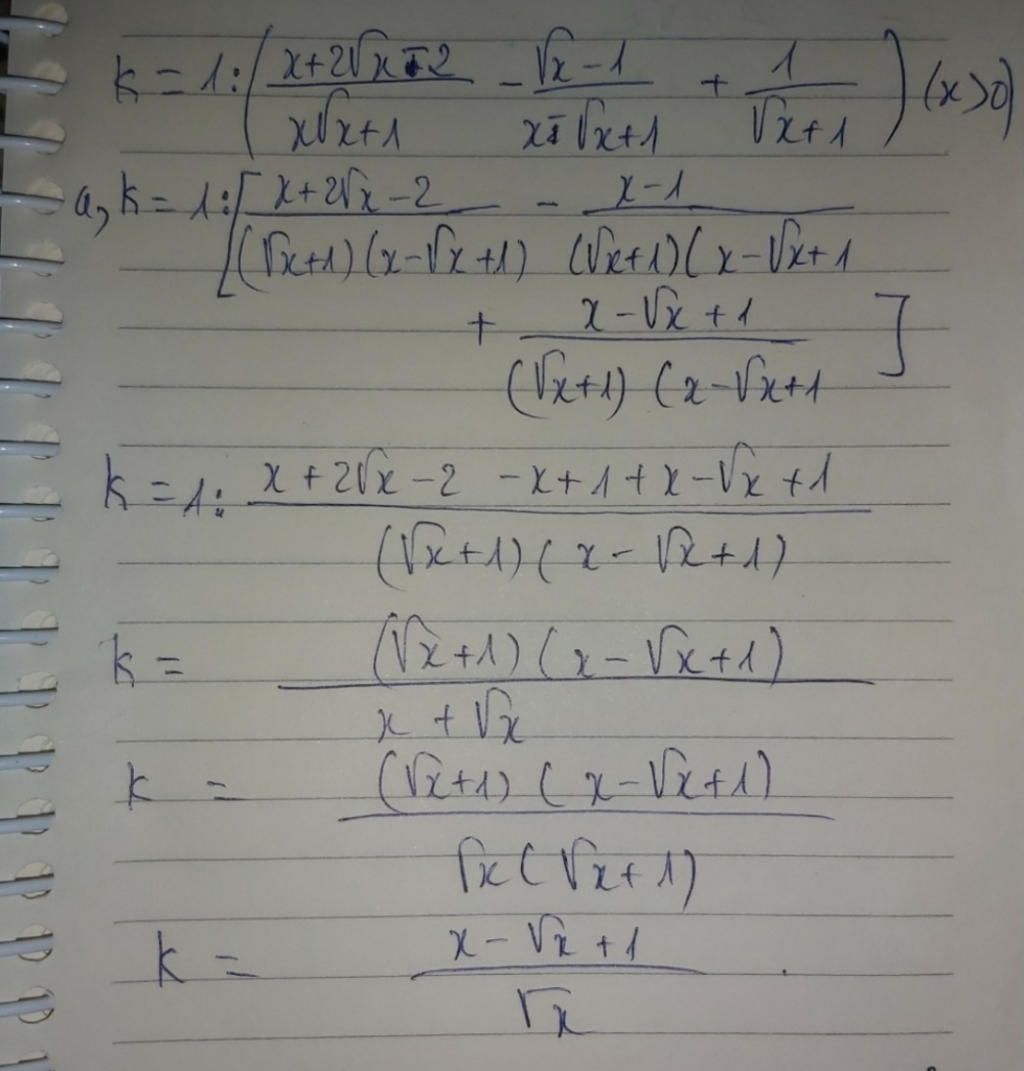 k = 1 : ( (x+2√x-2)/(x√x+1) - (√x-1)/(x-√x+1) + 1/(√x+1) ) (x>0)
a, k = 1 : [ (x+2√x-2)/((√x+1)(x-√x+1)) - (x-1)/((√x+1)(x-√x+1
+ (x-√x+1)/((√x+1)(x-√x+1 ]
k = 1 : (x+2√x-2 -x+1+x-√x+1)/((√x+1)(x-√x+1))
k = ((√x+1)(x-√x+1))/(x+√x)
k = ((√x+1)(x-√x+1))/(√x(√x+1))
k = (x-√x+1)/√x .